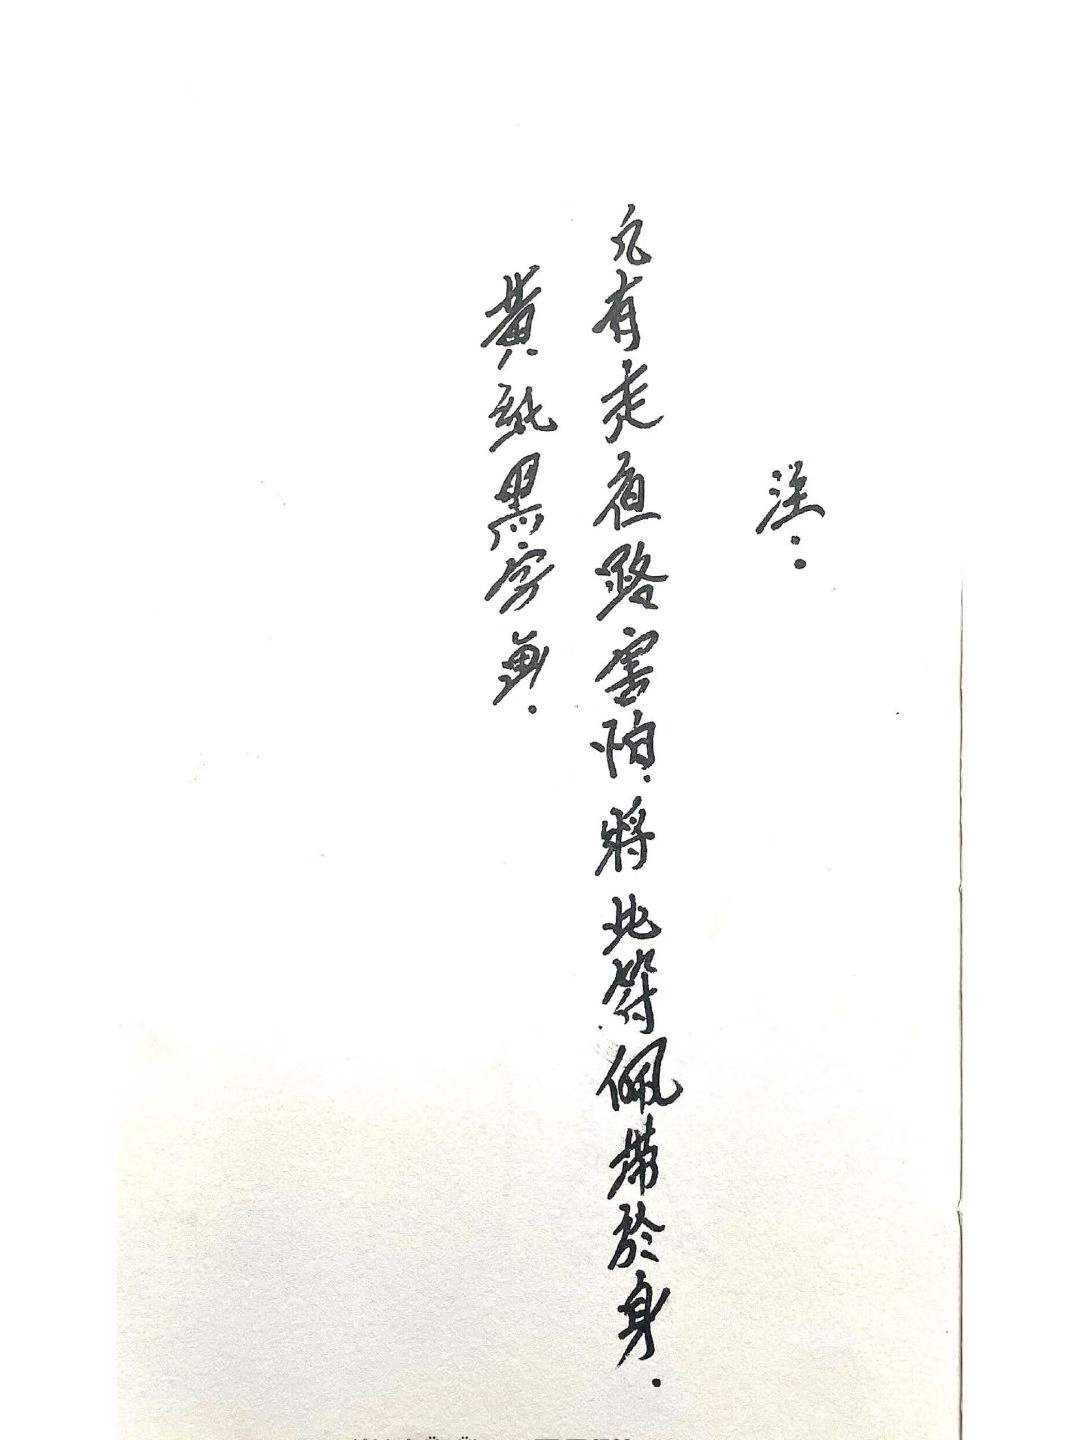 注：
凡有走夜路害怕．將此符佩帶於身．
黃紙黑字画．